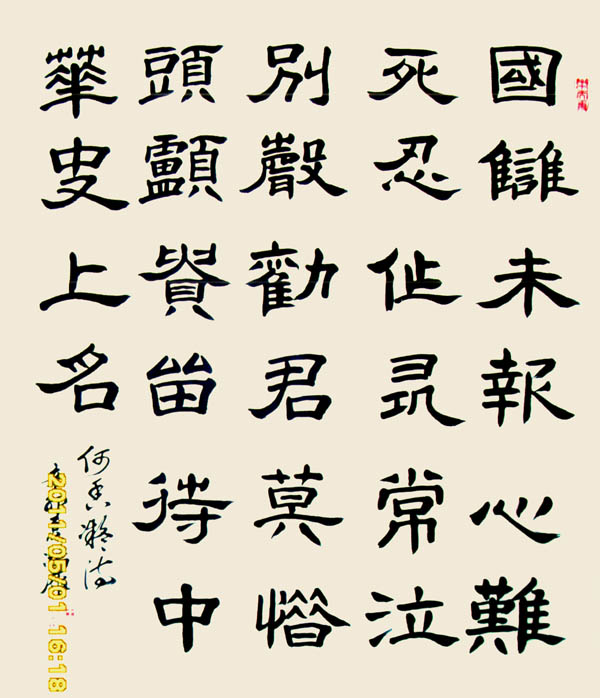 國讎未報心難
死忍作尋常泣
別聲勸君莫惜
頭顱貴留待中
華史上名
何香凝詩
2011/05/01 16:18